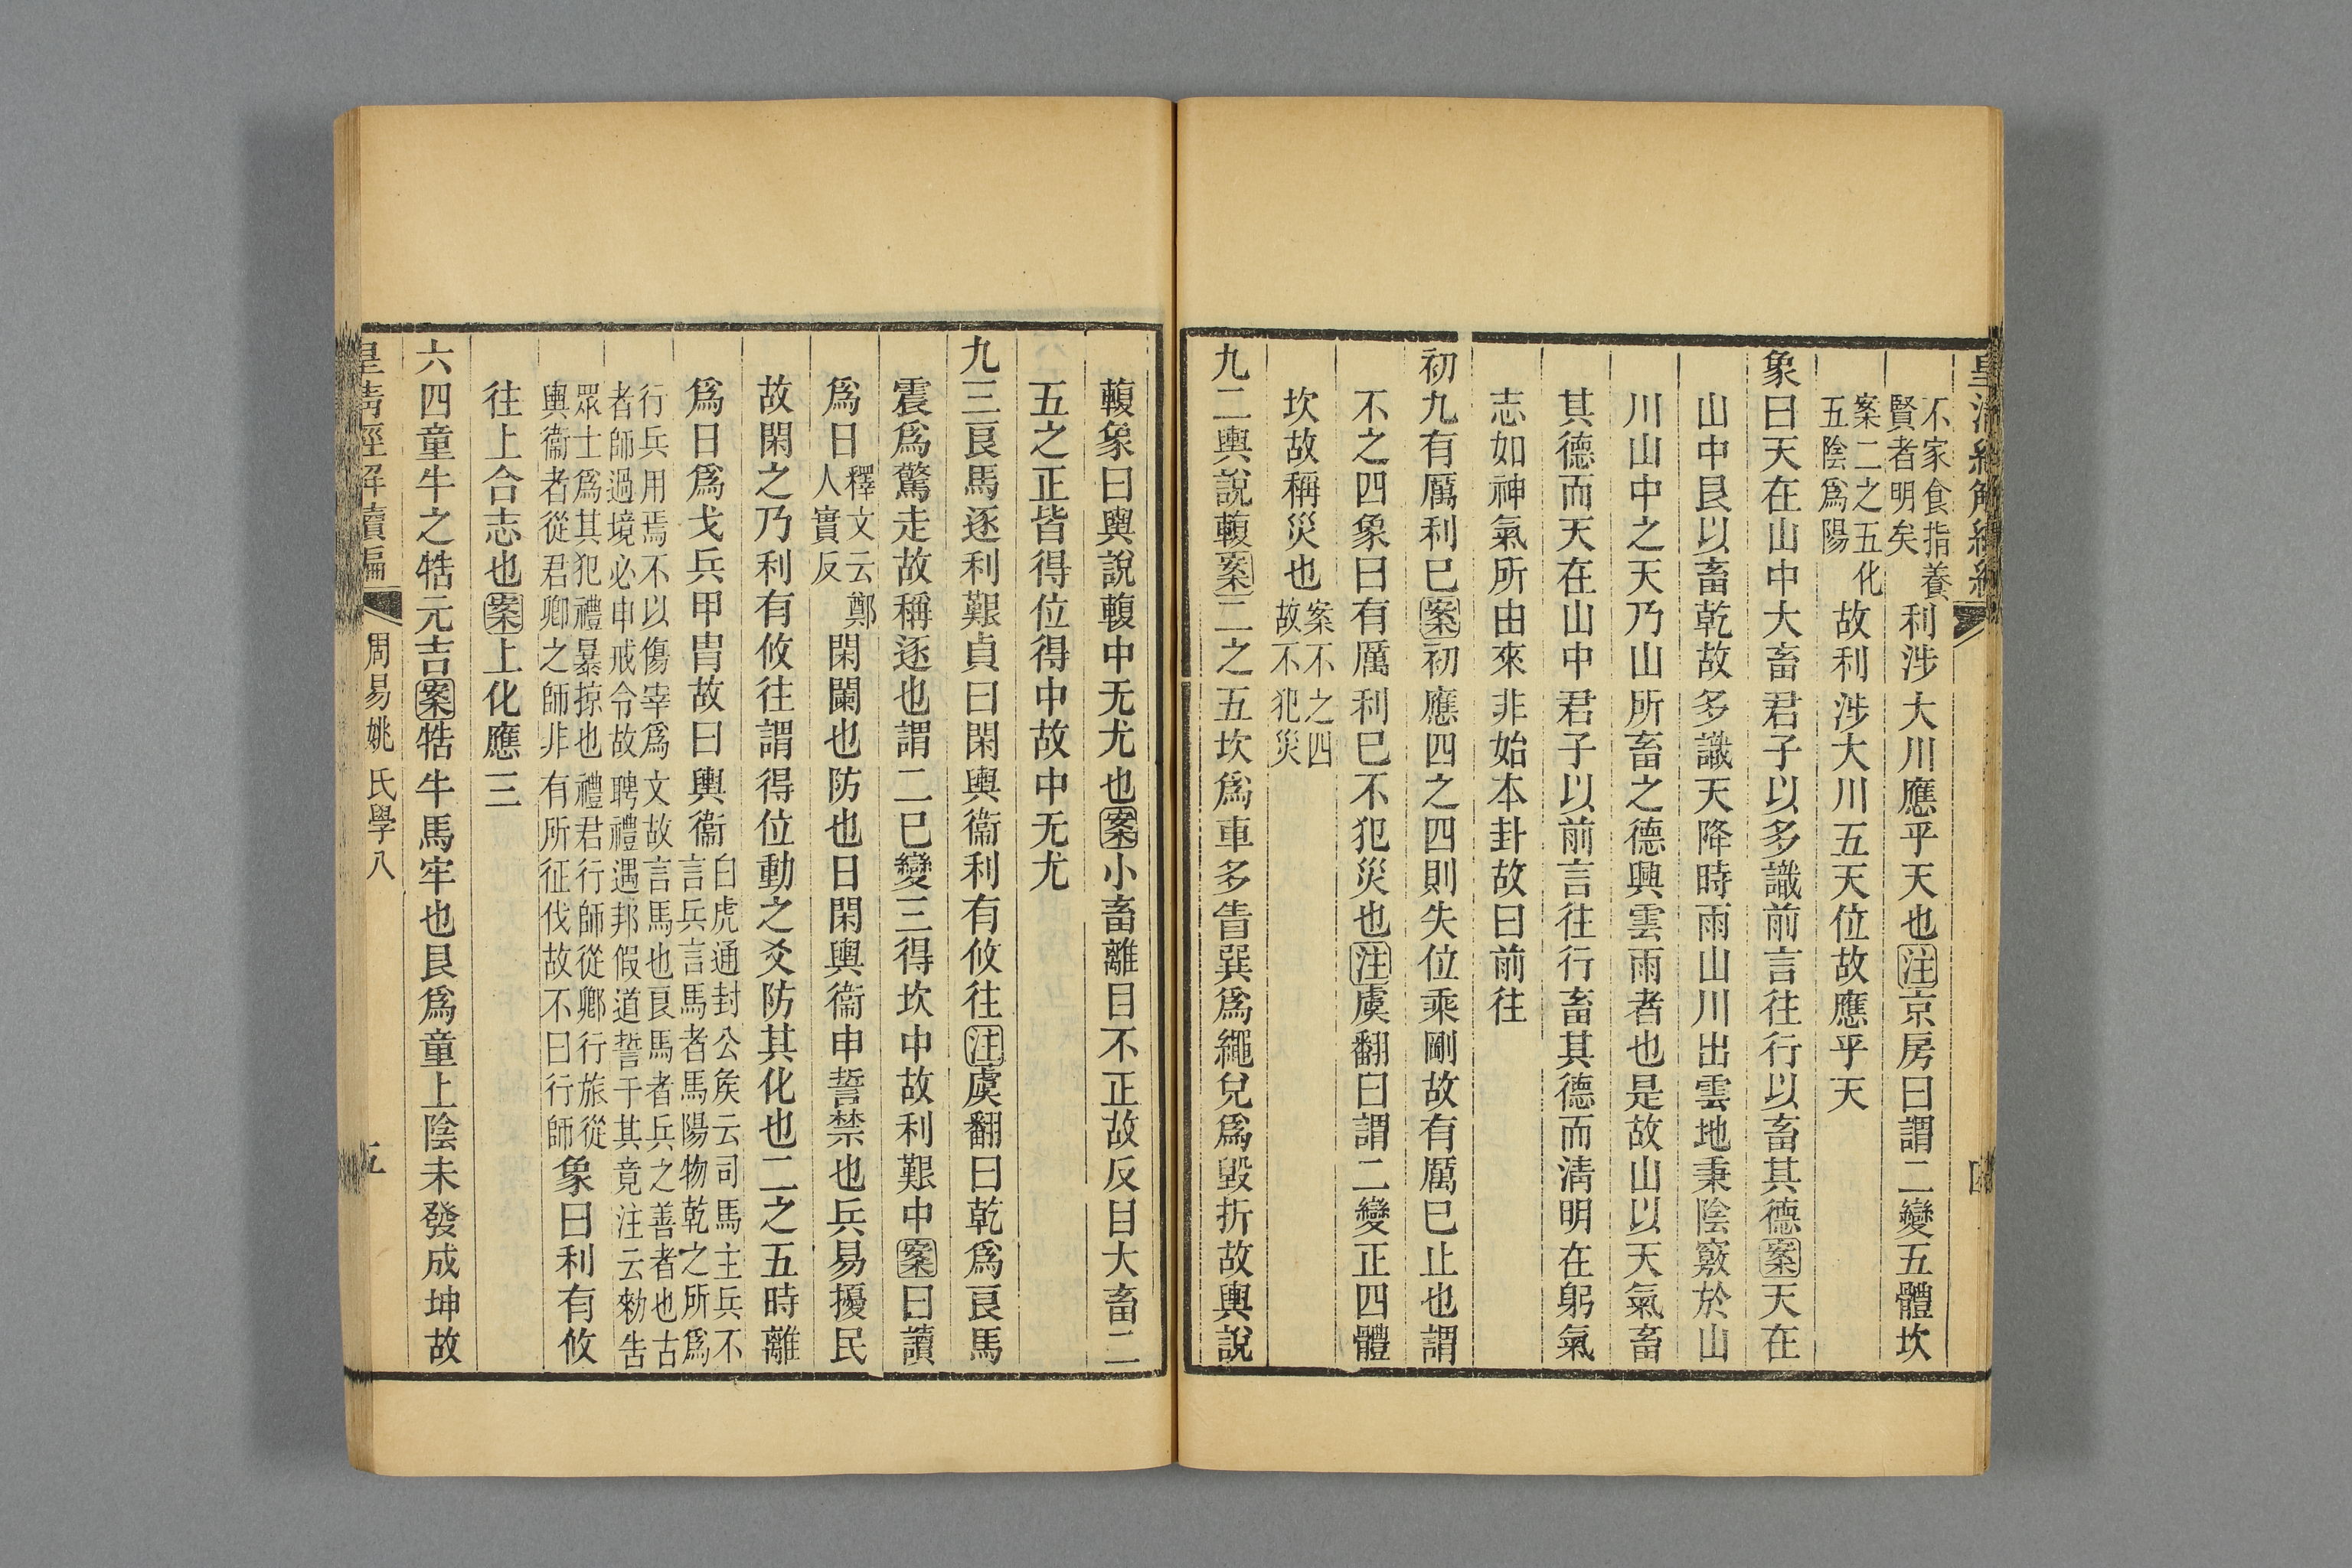 皇清經解續編
不家食指養賢者明矣利涉大川應乎天也注京房曰謂二變五體坎
案二之五化五陰爲陽故利涉大川五天位故應乎天
象曰天在山中大畜君子以多識前言往行以畜其德案天在
山中艮以畜乾故多識天降時雨山川出雲地秉陰竅於山
川山中之天乃山所畜之德興雲雨者也是故山以天氣畜
其德而天在山中君子以前言往行畜其德而淸明在躬氣
志如神氣所由來非始本卦故曰前往
初九有厲利巳案初應四之四則失位乘剛故有厲巳止也謂
不之四象曰有厲利巳不犯災也注虞翻曰謂二變正四體
坎故稱災也案不之四故不犯災
九二輿說輹案二之五坎爲車多眚巽爲繩兌爲毀折故輿說
輹象曰輿說輹中无尤也案小畜離目不正故反目大畜二
五之正皆得位得中故中无尤
九三良馬逐利艱貞曰閑輿衞利有攸往注虞翻曰乾爲良馬
震爲驚走故稱逐也謂二巳變三得坎中故利艱中案曰讀
爲日釋文云鄭人實反閑闌也防也日閑輿衞申誓禁也兵易擾民
故閑之乃利有攸往謂得位動之爻防其化也二之五時離
爲日爲戈兵甲胄故曰輿衞白虎通封公矦云司馬主兵不言兵言馬者馬陽物乾之所爲
行兵用焉不以傷宰爲文故言馬也良馬者兵之善者也古者師過境必申戒令故聘禮遇邦假道誓于其竟注云勑告
眾士爲其犯禮暴掠也禮君行師從卿行旅從輿衞者從君卿之師非有所征伐故不曰行師象曰利有攸
往上合志也案上化應三
六四童牛之牿元吉案牿牛馬牢也艮爲童上陰未發成坤故
皇清經解續編　周易姚氏學八　五